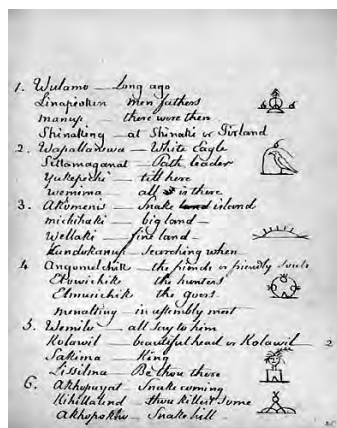 1. Wulamo — Long ago
Linapioken men fathers
manup — there were then
Shinaking — at Shinaki or Firland
2. Wapallanewa — White Eagle
Sittamaganat — Path leader
Yukepechi — till here
Wemima — all is there
3. Akomenis — Snake island
michihaki — big land —
Wellaki — fine land —
Kundokanup — Searching when
4 Angomelchik — the friends or friendly souls
Elowichik — the hunters
Elmusichik — the goers
menalting — in assembly meet
5. Wemilo — all say to him
Kolawil — beautiful head or Kolawil — 2
Sakima — King
Lissilma — Be thou there
6. Akhopayat — Snake coming
Kihillalend — thou killest some
Akhopokho — Snake hill